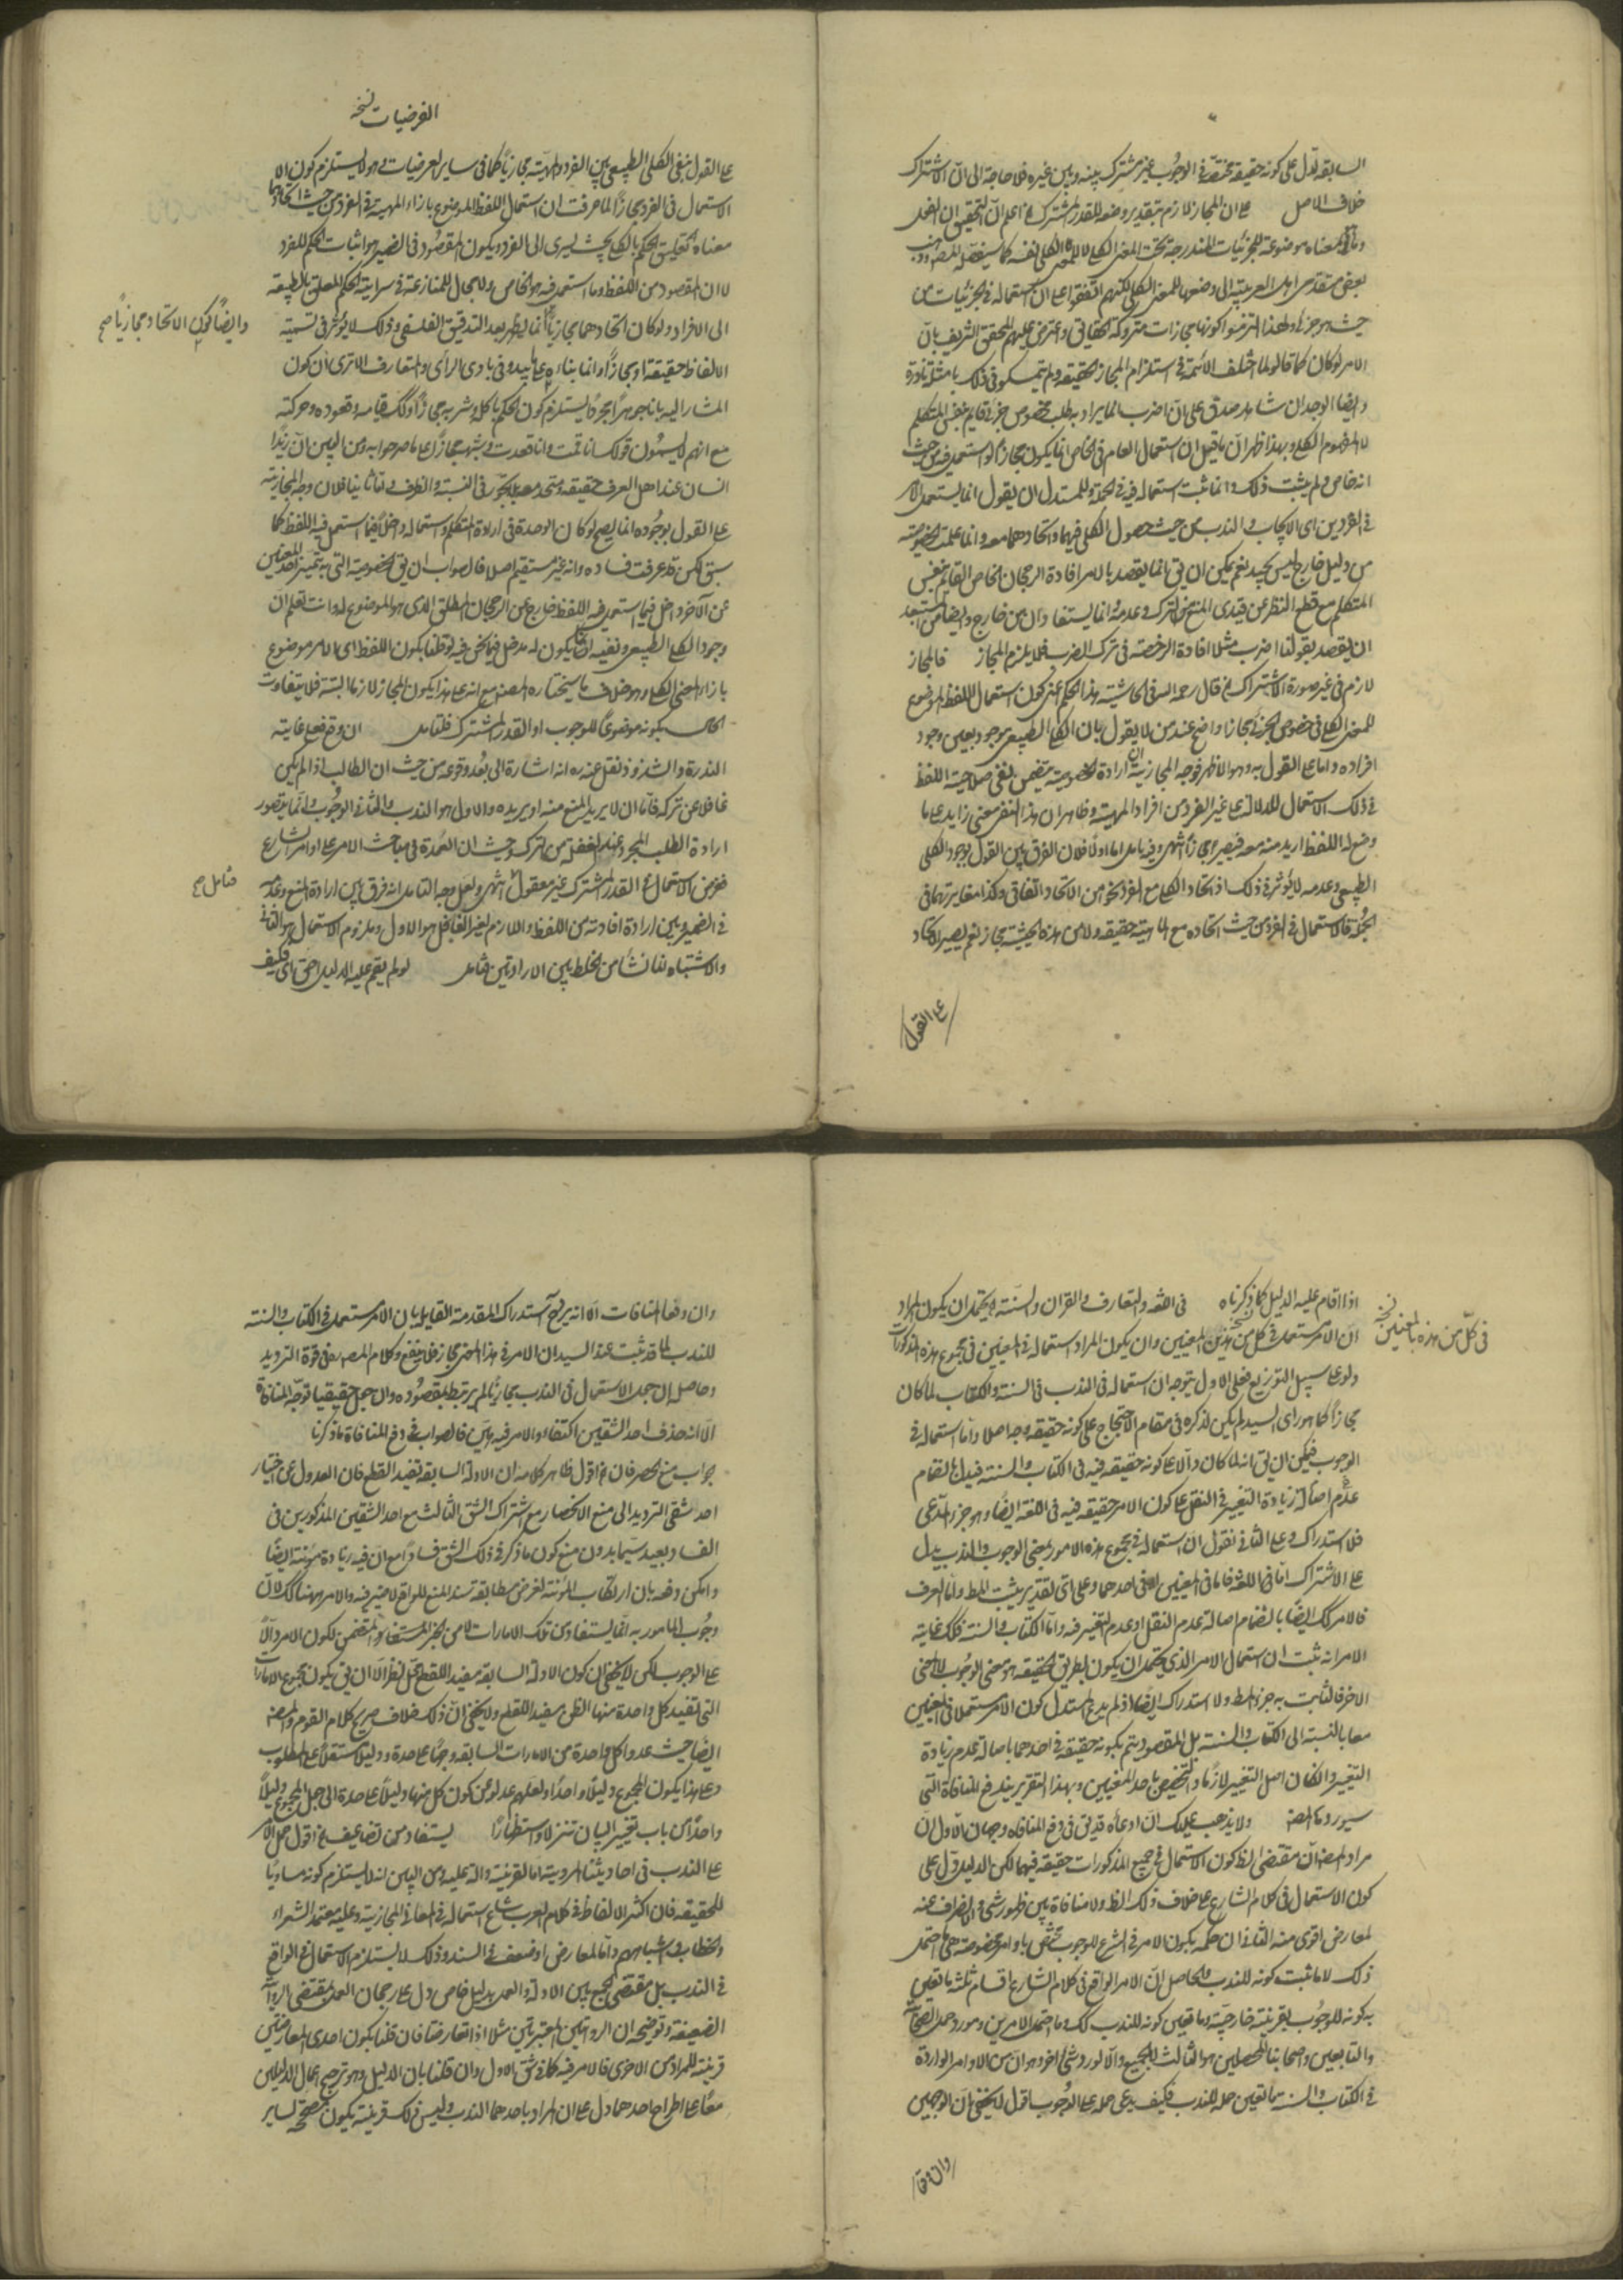 السابقه تدل على كونه حقيقة مختصة في الوجوب غير مشترك بينه وبين غيره فلا حاجة الى ان الاشتراك
خلاف الاصل على ان المجاز لازم بتقدير وضعه للقدر المشترك اعلم ان التحقيق ان الفعل
بعض متقدمي اهل العربية الى وضعها للمعنى الكلي لكنهم اتفقوا على ان استعماله في الجزئيات من
حيث هو جزئي ولهذا التزموا كونها مجازات متروكة الحقايق واعترض عليهم المحقق الشريف بان
الامر لو كان كما قالوا لما اختلف الائمة في استلزام المجاز الحقيقة ولم يتمسكوا في ذلك بامثلة نادرة
وايضا الوجدان شاهد صدق على ان اضرب انما يراد به طلب مخصوص جزئي قايم بنفس المتكلم
لا المفهوم الكلي وبهذا ظهر ان ما قيل ان استعمال العام في الخاص انما يكون مجازا لو استعمل فيه من حيث
انه خاص ولم يثبت ذلك وانما ثبت استعماله فيه في الجملة وللمستدل ان يقول انما يستعمل الامر
في الفردين اي الايجاب والندب من حيث حصول الكلي فيهما واتحادهما معه وانما علمت الخصوصية
من دليل خارج ليس بجيد نعم يمكن ان يق انما يقصد بالامر افادة الرجحان الخاص القائم بنفس
المتكلم مع قطع النظر عن قيدي المنع من الترك وعدمه وانما يستفادان من خارج وايضا من المستبعد
ان يقصد بقولنا اضرب مثلا افادة الرخصة في ترك الضرب فلا يلزم المجاز فالمجاز
لازم في غير صورة الاشتراك قال رحمه الله في الحاشية هذا الحكم اعني كون استعمال اللفظ الموضوع
للمعنى الكلي في خصوص الجزئي مجازا واضح عند من لا يقول بان الكلي الطبيعي موجود بعين وجود
افراده واما على القول به وهو الاظهر فوجه المجازية ان ارادة الخصوصية يتضمن نفي صلاحية اللفظ
في ذلك الاستعمال للدلالة على غير الفرد من افراد المهية وظاهر ان هذا النفي معنى زايد على ما
وضع له اللفظ اريد منه معه فيصير مجازا انتهى وفيه تامل اما اولا فلان الفرق بين القول بوجود الكلي
الطبيعي وعدمه لا يؤثر في ذلك اذ اتحاد الكلي مع الفرد نحو من الاتحاد اتفاقي وكذا مغايرتهما في
الجملة فالاستعمال في الفرد من حيث اتحاده مع الماهية حقيقة ولا من هذه الحيثية مجاز نعم يصير الاتحاد
على القول
الفرضيات نسخه
على القول بنفي الكلي الطبيعي بين الفرد والمهية مجازيا كما في ساير العرضيات وهو لا يستلزم كون الا
الاستعمال في الفرد مجازا لما عرفت ان استعمال اللفظ الموضوع بازاء المهية في الفرد من حيث اتحادهما
معناه تعليق الحكم بالكلي بحيث يسري الى الفرد ويكون المقصود في الضمير هو اثبات الحكم للفرد
لا ان المقصود من اللفظ وما استعمل فيه هو الخاص ولا مجال للمنازعة في سراية الحكم المعلق بالطبيعة
الى الافراد ولو كان اتحادهما مجازيا انما يظهر بعد التدقيق الفلسفي وذلك لا يؤثر في تسمية
وايضا كون الاتحاد مجازيا صح
الالفاظ حقيقة او مجازا وانما بناؤه على ما يبدو في بادي الرأي والمتعارف الا ترى ان كون
المشار اليه بانا جوهرا مجردا يستلزم كون الحكم باكله وشربه مجازا وكك قيامه وقعوده وحركته
مع انهم لا يسمون قولك انا قمت وانا قعدت وشبهه مجازا على ما صرحوا به ومن البين ان زيدا
على القول بوجوده انما يصح لو كان الوحدة في ارادة المتكلم واستعماله داخلا فيما استعمل فيه اللفظ كما
سبق لكن قد عرفت فساده وانه غير مستقيم اصلا فالصواب ان يق الخصوصية التي به يتميز احد المعنيين
عن الآخر داخل فيما استعمل فيه اللفظ خارج عن الرجحان المطلق الذي هو الموضوع له وانت تعلم ان
وجود الكلي الطبيعي ونفيه انما يكون له مدخل فيما نحن فيه لو قلنا بكون اللفظ اي الامر موضوع
بازاء المعنى الكلي وهو خلاف ما سيختاره المصنف مع انه على هذا يكون المجاز لازما البتة فلا يتفاوت
الحال بكونه موضوعا للوجوب او القدر المشترك فلتامل ان وقع فعلى غاية
الندرة والشذوذ نقل عنه ره انه اشارة الى بعد وقوعه من حيث ان الطالب اذا لم يكن
غافلا عن تركه فاما ان لا يريد المنع منه او يريده والاول هو الندب والثاني الوجوب وانما يتصور
ارادة الطلب المجرد عند الغفلة من الترك وحيث ان العمدة في مباحث الامر على اوامر الشارع
فرض الاستعمال في القدر المشترك غير معقول انتهى ولعل وجه التامل انه فرق بين ارادة المنع وعدمه
فتامل صح
في الضمير وبين ارادة افادته من اللفظ واللازم لغير الغافل هو الاول وملزوم الاستعمال هو الثاني
والاشتباه انما نشأ من الخلط بين الارادتين فتامل لو لم يقم عليه الدليل احق اي فكيف
اذا اقام عليه الدليل كما ذكرناه في اللغة والتعارف والقرآن والسنة يحتمل ان يكون المراد
في كل من هذه بالمعنيين نسخه
ان الامر مستعمل في كل من هذين المعنيين وان يكون المراد استعماله في المعنيين في مجموع هذه المذكورات
ولو على سبيل التوزيع فعلى الاول يتوجه ان استعماله في الندب في السنة والكتاب لما كان
مجازا كما هو راي السيد لم يكن لذكره في مقام الاحتجاج على كونه حقيقه وجه اصلا واما استعماله في
الوجوب فيمكن ان يق انه لما كان دالا على كونه حقيقه فيه في الكتاب والسنة فيدل بانضمام
عدم اصالة زيادة التغيير في النقل على كون الامر حقيقه فيه في اللغة ايضا وهو جزء المدعى
فلا استدراك وعلى الثاني نقول ان استعماله في مجموع هذه الامور بمعنى الوجوب والندب يدل
على الاشتراك اما في اللغة فاما في المعنيين او في احدهما وعلى اي تقدير يثبت المط واما العرف
فالامر كك ايضا بانضمام اصالة عدم النقل او عدم التغيير فيه واما الكتاب والسنة فكك غاية
الامر انه ثبت ان استعمال الامر الذي يحتمل ان يكون بطريق الحقيقه هو معنى الوجوب لا المعنى
الآخر فالثابت به جزء المط ولا استدراك ايضا اذ لم يدع المستدل كون الامر مستعملا في المعنيين
معا بالنسبة الى الكتاب والسنة بل المقصود يتم بكونه حقيقه في احدهما باصالة عدم زيادة
التغيير وان كان اصل التغيير لازما والتخصيص باحد المعنيين وبهذا التقرير يندفع المنافاة التي
سيورده المصنف ولا يذهب عليك ان ادعاه قد يق في دفع المنافاة وجهان الاول ان
مراد المصنف ان مقتضى الظ كون الاستعمال في جميع المذكورات حقيقه فيهما لكن الدليل دل على
كون الاستعمال في كلام الشارع على خلاف ذلك الظ ولا منافاة بين ظهور شي والانصراف عنه
لمعارض اقوى منه الثاني ان حكمه بكون الامر في الشرع للوجوب مختص باوامر مخصوصة هي ما احتمل
ذلك لا ما ثبت كونه للندب والحاصل ان الامر الواقع في كلام الشارع اقسام ثلثة ما تعين
به كونه للوجوب بقرينة خارجية وما تعين كونه للندب كك وما احتمل الامرين ومورد حمل الصحابة
والتابعين واصحابنا المحصلين هو الثالث لا الجميع والا لورد شي آخر وهو ان من الاوامر الواردة
في الكتاب والسنة ما تعين حمله للندب فكيف يدعى حمله على الوجوب اقول لا يخفى ان الوجهين
وان وقعا
وان دفعا المنافات الا انه يرد ح استدراك المقدمة القايلة بان الامر مستعمل في الكتاب والسنة
للندب لما قد ثبت عند السيد ان الامر في هذا المعنى مجاز فلا ينفع وكلام المصنف في قوة الترديد
وحاصله ان حمل الاستعمال في الندب مجازيا لم يرتبط بمقصوده وان حمل حقيقيا توجه المنافاة
الا انه حذف احد الشقين اكتفاء والامر فيه هين فالصواب في دفع المنافاة ما ذكرنا
جواب منع الحصر فان اقول ظاهر كلامه ان الادلة السابقة تفيد القطع فان العدول عن اختيار
احد شقي الترديد الى منع الانحصار مع اشتراك الشق الثالث مع احد الشقين المذكورين في
الفساد بعيد سيما بدون منع كون ما ذكر في ذلك الشق فسادا مع ان فيه زيادة مؤنة ايضا
وامكن دفعه بان ارتكاب المؤنة لغرض مطابقة سند المنع للواقع لا ضير فيه والامر ههنا كك لان
وجوب المامور به انما يستفاد من تلك الامارات لا من الخبر المستفاد المتضمن لكون الامر دالا
على الوجوب لكن لا يخفى ان كون الادلة السابقة مفيدا للقطع محل نظر الا ان يق يكون مجموع الامارات
التي تفيد كل واحدة منها الظن مفيدا للقطع ولا يخفى ان ذلك خلاف صريح كلام القوم والمصنف
ايضا حيث عدوا كل واحدة من الامارات السابقة وجها على حدة ودليلا مستقلا على المطلوب
وعلى هذا يكون المجموع دليلا واحدا ولعلهم عدلوا عن كون كل منها دليلا على حدة الى جعل المجموع دليلا
واحدا من باب تغيير البيان تنزلا واستظهارا يستفاد من تضاعيف اقول حمل الامر
على الندب في احاديثنا المروية اما القرينة دالة عليه ومن البين انه لا يستلزم كونه مساويا
للحقيقه فان اكثر الالفاظ في كلام العرب شاع استعماله في المعاني المجازية وعليه معتمد الشعراء
والخطاب واشباههم واما لمعارض او ضعف في السند وذلك لا يستلزم الاستعمال في الواقع
في الندب بل مقتضى الجمع بين الادلة والعمل بدليل خاص دل على رجحان العمل بمقتضى الرواية
الضعيفة وتوضيحه ان الروايتين المعتبرتين مثلا اذا تعارضتا فان قلنا بكون احدى المعارضتين
قرينة للمراد من الاخرى فالامر فيه كما في شق الاول وان قلنا بان الدليل وهو ترجيح اعمال الدليلين
معا على اطراح احدهما دل على ان المراد باحدهما الندب وليس ذلك قرينة يكون مصححة لساير